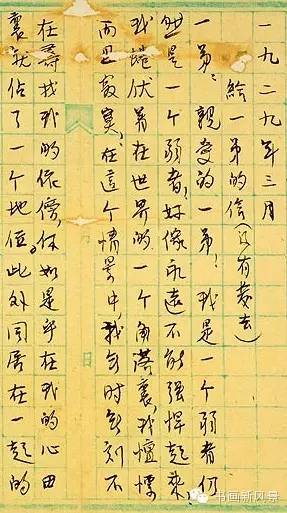 一九二九年三月
給一弟的信(没有發去)
一弟,親愛的一弟,我是一个弱者仍
然是一个弱者,好像永遠不能強悍起來,
我蜷伏着在世界的一个角落裏,我
而且寂寞:在這个情景中,我無时無刻不
在尋找我的依傍,你如是乎在我的心田
裏就佔了一个地位。此外同居在一起的
书画新风景